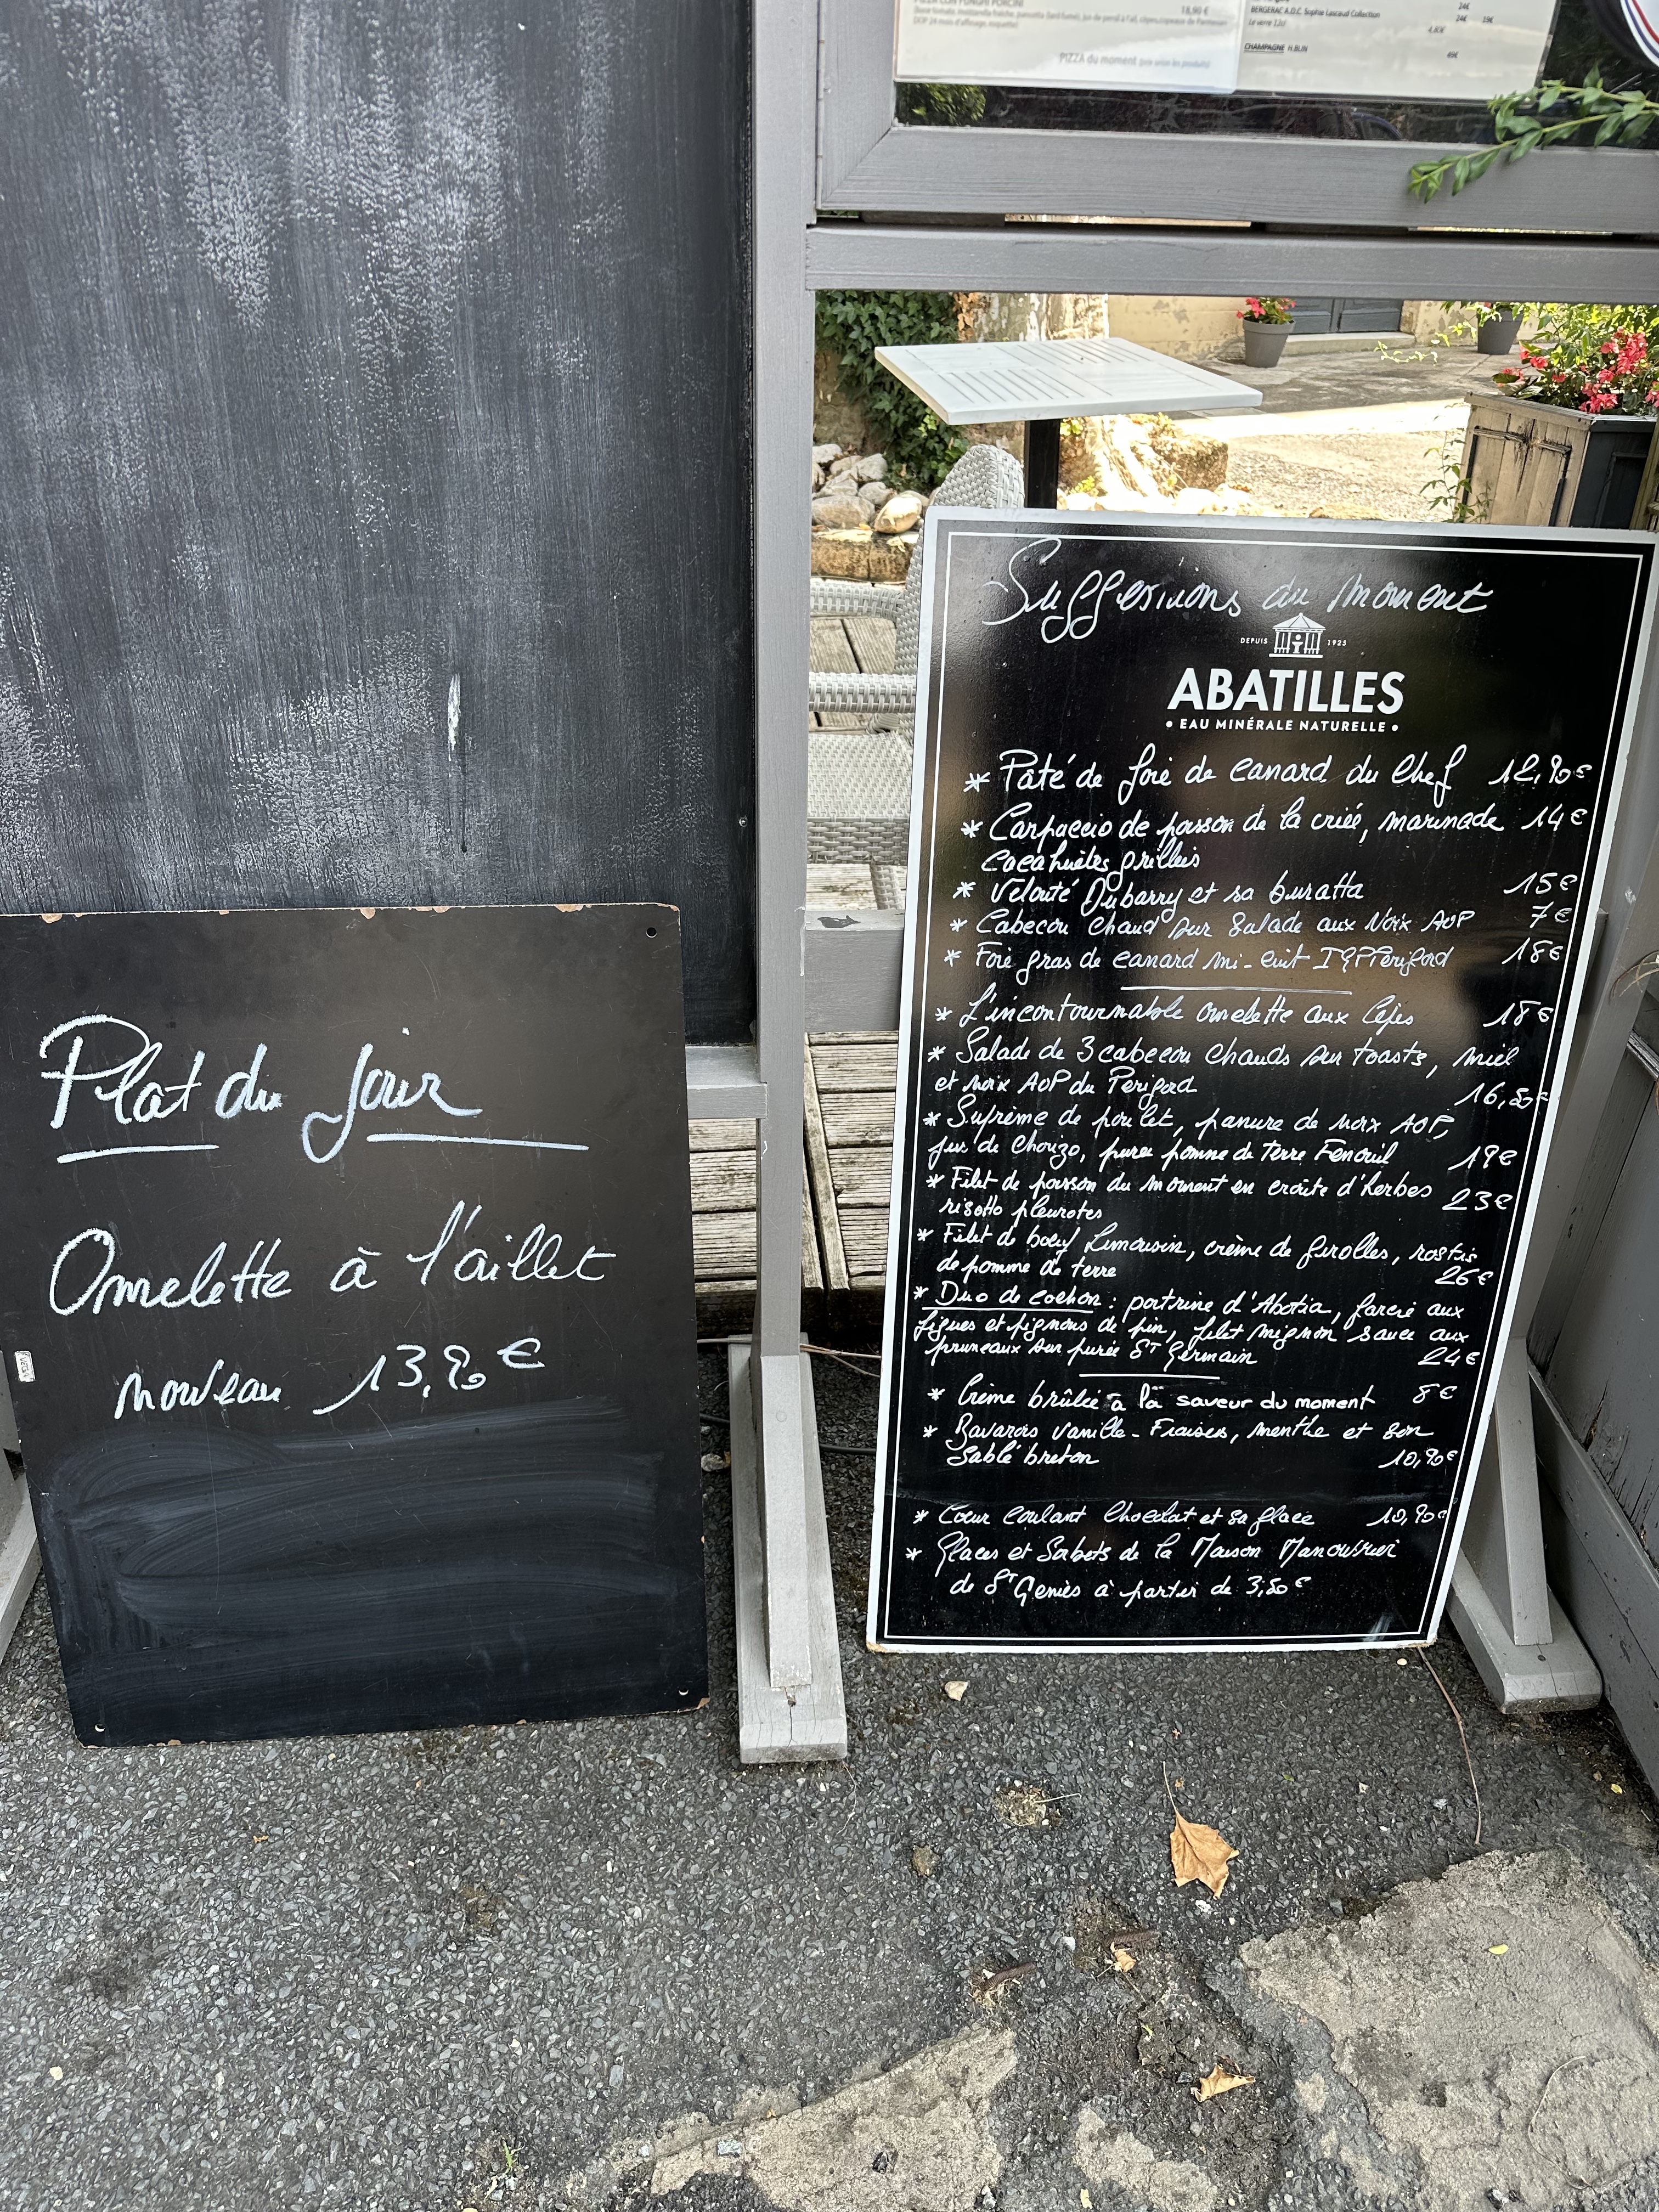 PIZZA CON FUNGHI PORCINI
18,90 €
PIZZA du moment (prix selon les produits)
BERGERAC A.O.C. Sophie Lascaud Collection
Le verre 12cl
CHAMPAGNE H.BLIN
24€
24€ 19€
4,80€
40€
Plat du jour
Omelette à l'aillet
nouveau 13,90 €
Suggessions du moment
DEPUIS 1925
ABATILLES
• EAU MINÉRALE NATURELLE •
* Pâté de foie de canard du Chef 12,90€
* Carpaccio de poisson de la criée, marinade 14€
cacahuètes grillées
* Velouté Dubarry et sa buratta 15€
* Cabecou Chaud sur Salade aux Noix AOP 7€
* Foie gras de canard mi-cuit IGP Périgord 18€
* L'incontournable omelette aux Cèpes 18€
* Salade de 3 cabecou chauds sur toasts, miel
et noix AOP du Périgord 16,50€
* Suprême de poulet, panure de noix AOP,
jus de Chorizo, puree pomme de Terre Fenouil 19€
* Filet de poisson du moment en croûte d'herbes 23€
risotto pleurotes
* Filet de boeuf Limousin, crème de Girolles, rostis
de pomme de terre 26€
* Duo de cochon : poitrine d'Abotia, farcie aux
figues et pignons de pin, filet mignon sauce aux
pruneaux sur purée St Germain 24€
* Crème brûlée à la saveur du moment 8€
* Bavarois vanille - Fraises, menthe et son
Sablé breton 10,90€
* Coeur Coulant Chocolat et sa glace 10,90€
* Glaces et Sorbets de la Maison Manouvrier
de St Geniès à partir de 3,50€